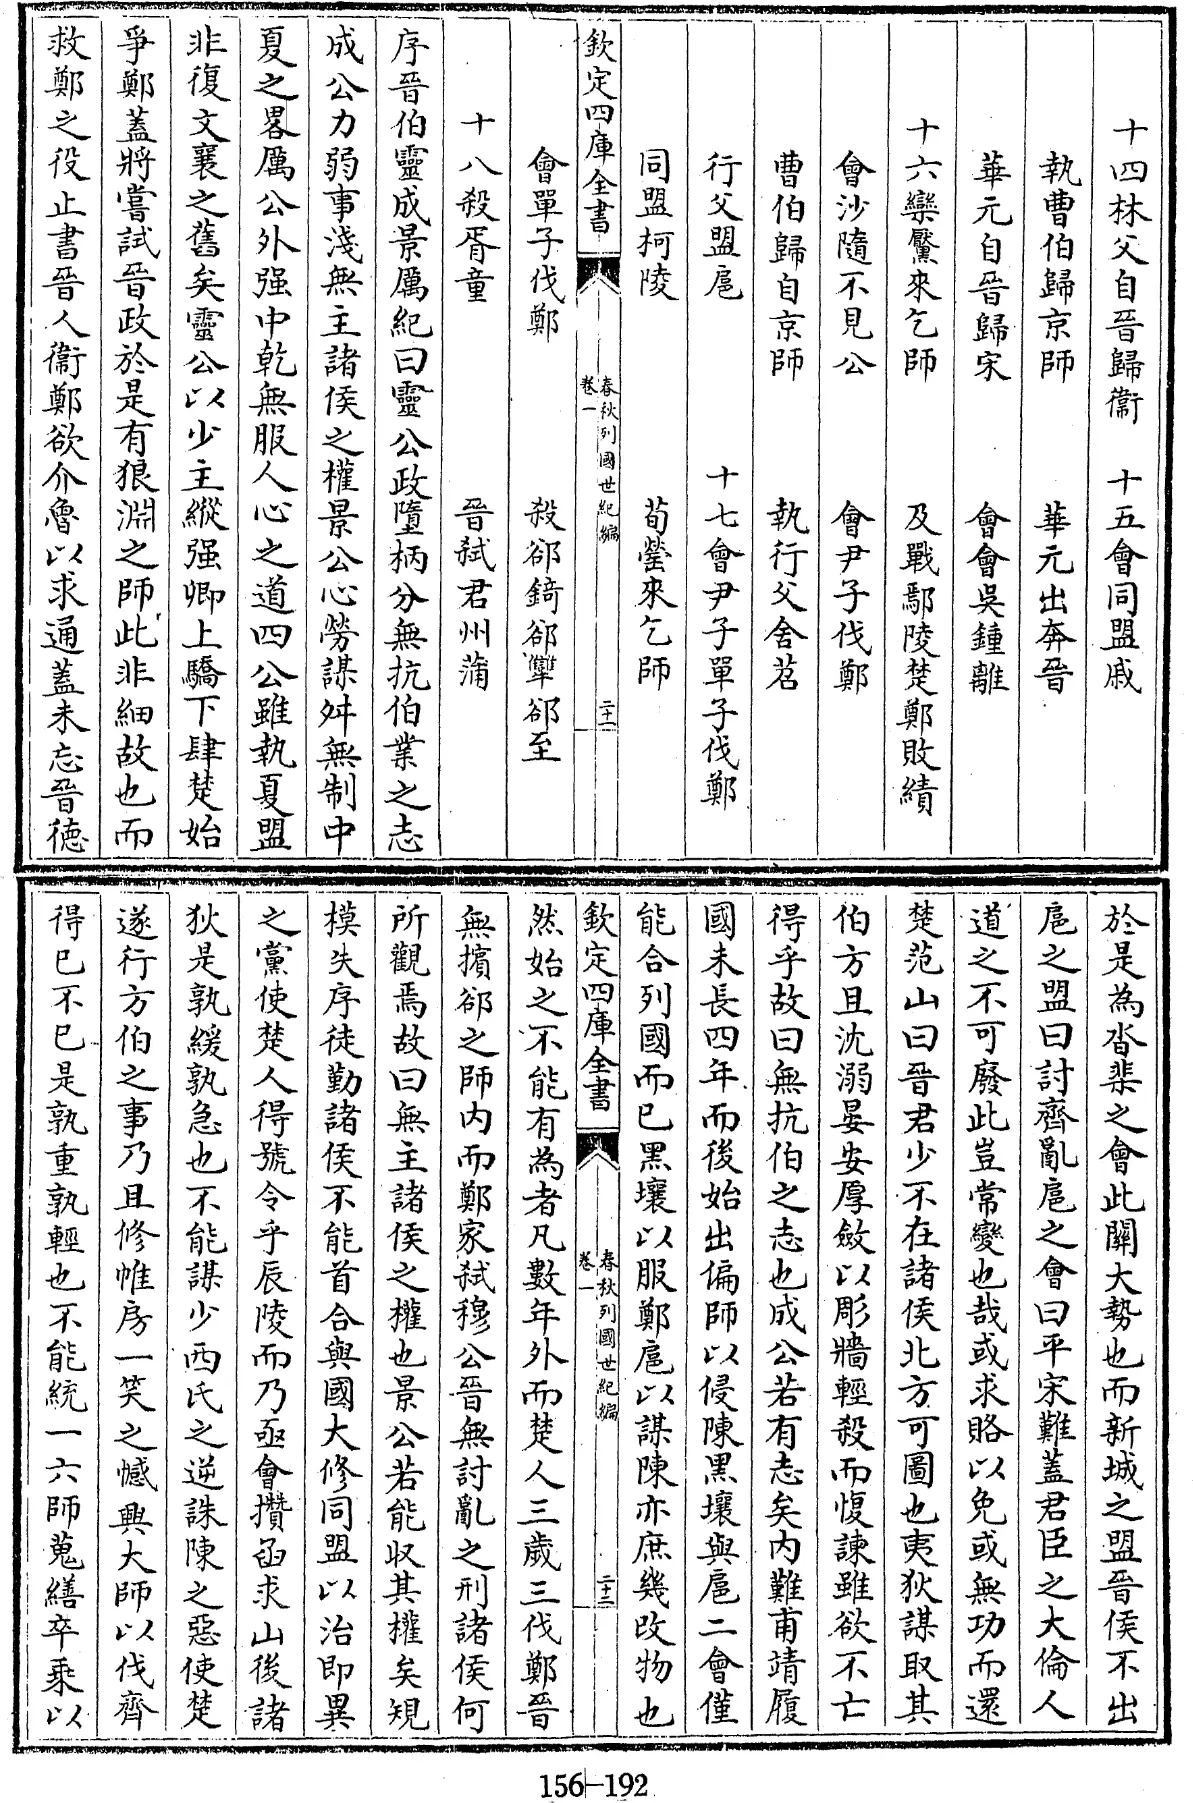 十四林父自晉歸衞　十五會同盟戚
執曹伯歸京師　華元出奔晉
華元自晉歸宋　會會吳鍾離
十六欒黶來乞師　及戰鄢陵楚鄭敗績
會沙隨不見公　會尹子伐鄭
曹伯歸自京師　執行父舍苕
行父盟扈　十七會尹子單子伐鄭
同盟柯陵　荀罃來乞師
欽定四庫全書　春秋列國世紀編卷一　二十一
會單子伐鄭　殺郤錡郤犫郤至
十八殺胥童　晉弑君州蒲
序晉伯靈成景厲紀曰靈公政墮柄分無抗伯業之志
成公力弱事淺無主諸侯之權景公心勞謀舛無制中
夏之畧厲公外强中乾無服人心之道四公雖執夏盟
非復文襄之舊矣靈公以少主縱强卿上驕下肆楚始
爭鄭蓋將嘗試晉政於是有狼淵之師此非細故也而
救鄭之役止書晉人衞鄭欲介魯以求通蓋未忘晉德
於是為沓棐之會此關大勢也而新城之盟晉侯不出
扈之盟曰討齊亂扈之會曰平宋難蓋君臣之大倫人
道之不可廢此豈常變也哉或求賂以免或無功而還
楚范山曰晉君少不在諸侯北方可圖也夷狄謀取其
伯方且沈溺晏安厚斂以彫牆輕殺而愎諫雖欲不亡
得乎故曰無抗伯之志也成公若有志矣内難甫靖履
國未長四年而後始出偏師以侵陳黑壤與扈二會僅
能合列國而已黑壤以服鄭扈以謀陳亦庶幾改物也
欽定四庫全書　春秋列國世紀編卷一　二十二
然始之不能有為者凡數年外而楚人三歲三伐鄭晉
無擯郤之師内而鄭家弑穆公晉無討亂之刑諸侯何
所觀焉故曰無主諸侯之權也景公若能収其權矣規
模失序徒勤諸侯不能首合與國大修同盟以治即異
之黨使楚人得號令乎辰陵而乃亟會攢函求山後諸
狄是孰緩孰急也不能謀少西氏之逆誅陳之惡使楚
遂行方伯之事乃且修帷房一笑之憾興大師以伐齊
得已不已是孰重孰輕也不能統一六師蒐繕卒乘以
156-192